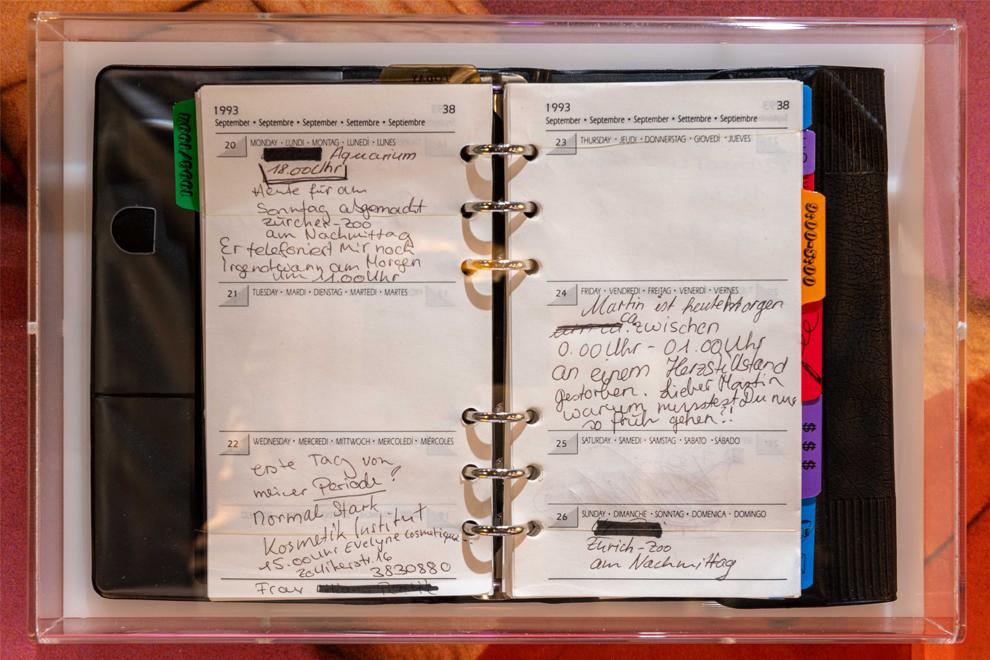 1993
38
September • Septembre • September • Settembre • Septiembre
20
MONDAY • LUNDI • MONTAG • LUNEDÌ • LUNES
Aquarium
18.00 Uhr
Heute für am
Sonntag abgemacht
Zürcher-Zoo
am Nachmittag
Er telefoniert Mir noch
Irgendwann am Morgen
um 11.00 Uhr
21
TUESDAY • MARDI • DIENSTAG • MARTEDÌ • MARTES
22
WEDNESDAY • MERCREDI • MITTWOCH • MERCOLEDÌ • MIÉRCOLES
erste Tag von
meiner Periode?
normal Stark
Kosmetik Institut
15.00 Uhr Evelyne Cosmetique
Zollikerstr. 16
3830880
Frau
1993
38
September • Septembre • September • Settembre • Septiembre
23
THURSDAY • JEUDI • DONNERSTAG • GIOVEDÌ • JUEVES
24
FRIDAY • VENDREDI • FREITAG • VENERDÌ • VIERNES
Martin ist heute Morgen
ca. zwischen
0.00 Uhr - 01.00 Uhr
an einem Herzstillstand
gestorben. Lieber Martin
warum musstest Du nur
so früh gehen?!
25
SATURDAY • SAMEDI • SAMSTAG • SABATO • SÁBADO
26
SUNDAY • DIMANCHE • SONNTAG • DOMENICA • DOMINGO
Zürich-Zoo
am Nachmittag
$ $ $
$ $ $